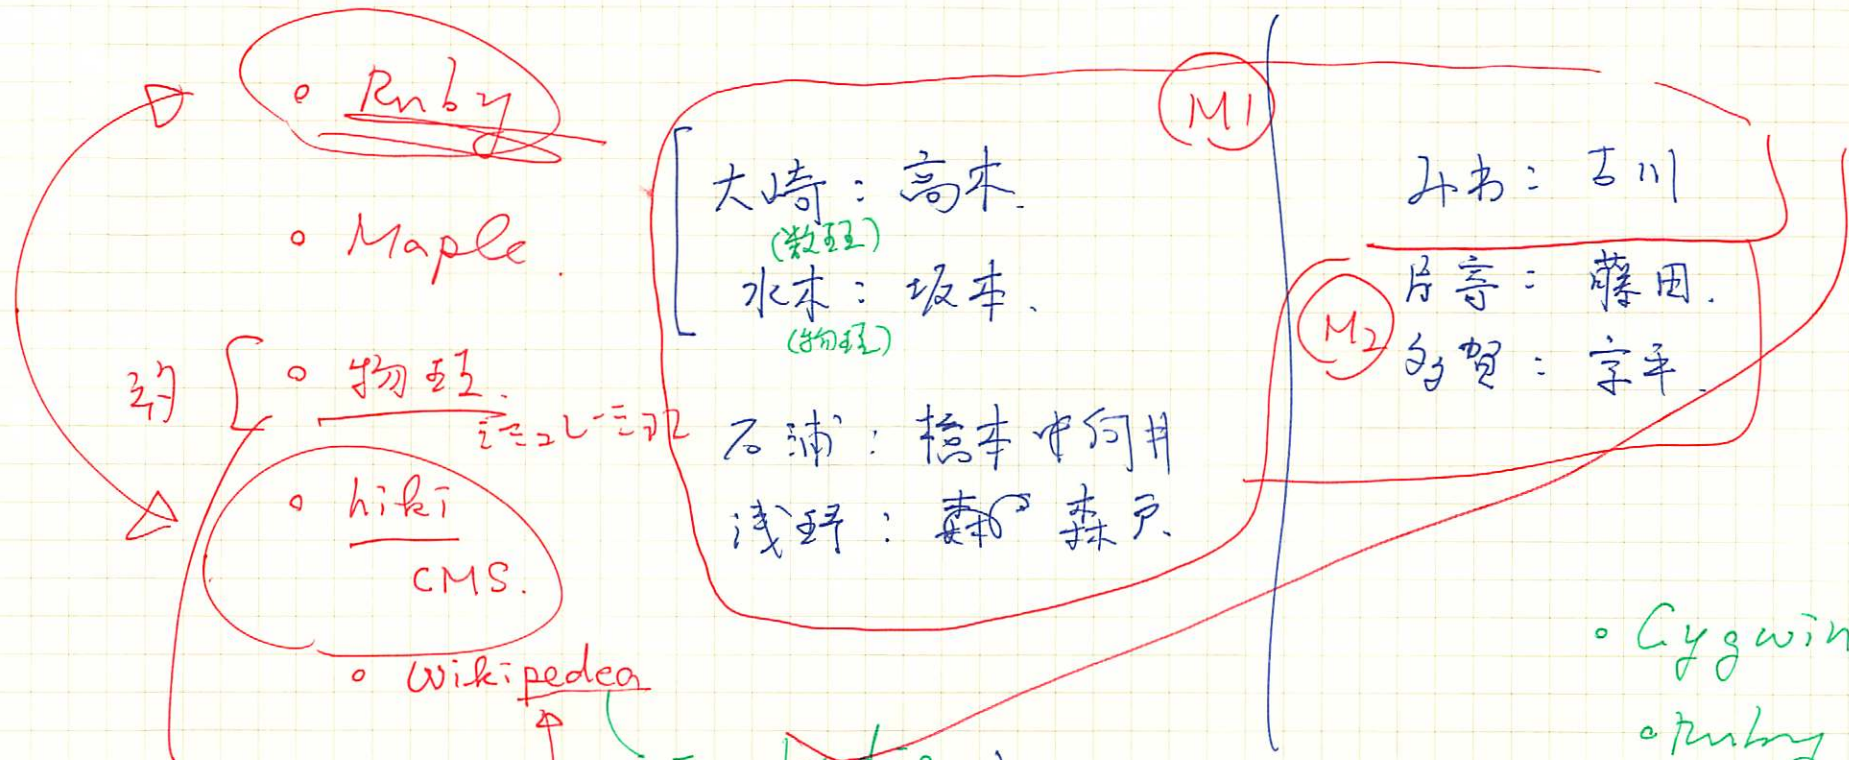 • Ruby
• Maple.
• 物理.
• hiki
CMS.
• Wikipedea
M1
大崎：高木.
(数理)
水本：坂本.
(物理)
石浦：橋本 中向井
浅野：森 森戸.
古川
M2
片寄：藤田.
多賀：宇平.
• Cygwin
• Ruby